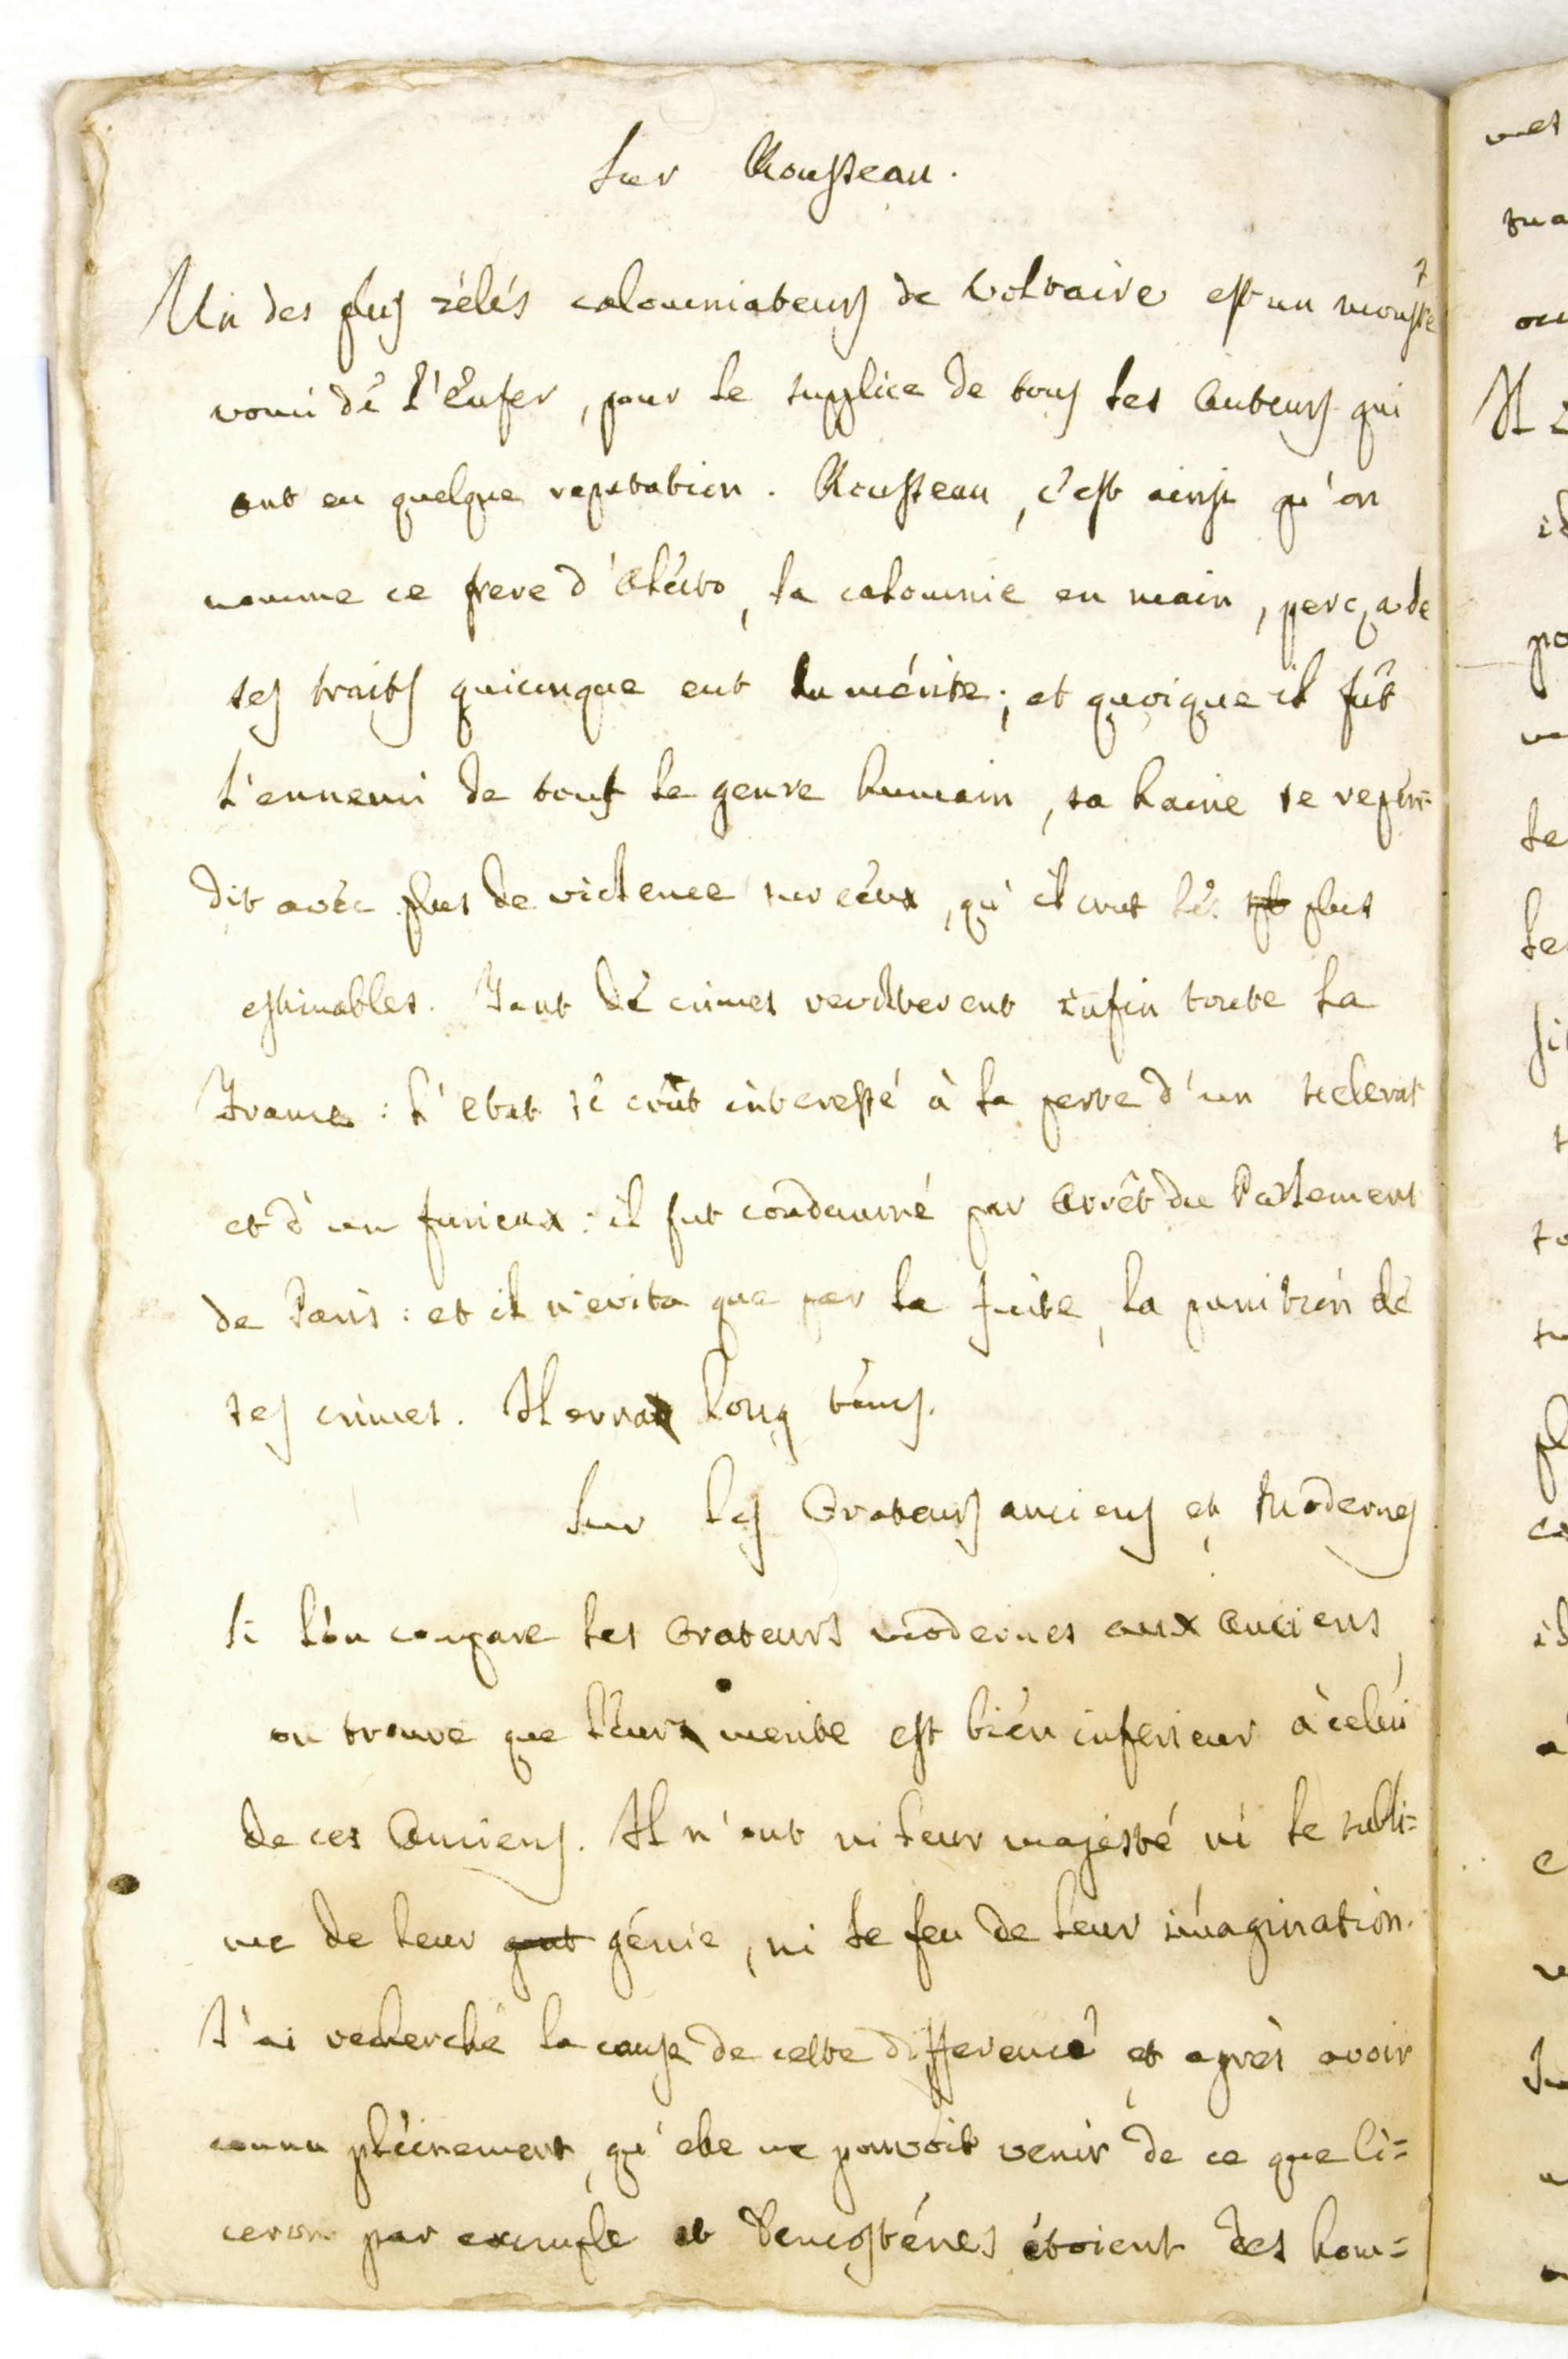 Sur Rousseau.
Un des plus zélés calomniateurs de Voltaire est un monstre
vomi dé l'Enfer, pour le supplice de tous les Auteurs qui
ont eu quelque reputation. Rousseau, c'est ainsi qu'on
nomme ce frere d'Alécto, la calomnie en main, perça de
ses traits quiconque eut du mérite; et quoique il fût
l'ennemi de tout le genre humain, sa haine se repén=
dit avéc plus de violence sur céux, qu'il crut lés plus
estimables. Tant dé crimes revolterent enfin toute la
France: l'etat sé crût interessé à la perte d'un scelerat
et d'un furieux: il fut condamné par Arrêt du Parlement
de Paris: et il n'evita que par la fuite, la punition dé
ses crimes. Il erra long téms.
Sur les Orateurs anciens et Modernes
Si l'ón compare les Orateurs modernes aux Anciens,
on trouve que léur merite est bién inferieur à celúi
de ces Anciens. Il n'ont ni leur majesté ni le subli=
me de leur gout génie, ni le feu de leur imagination.
J'ai recherché la cause de cette difference et après avoir
connu pléinement, qu'elle ne pouvoit venir de ce que Ci=
ceron par exemple et Demosténes étoient des hom=